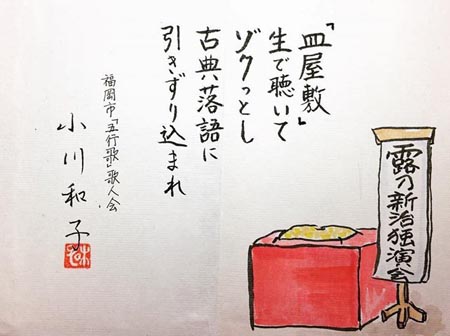 「皿屋敷」
生で聴いて
ゾクっとし
古典落語に
引きずり込まれ
福岡市「五行歌」歌人会
小川和子
露乃新治独演会